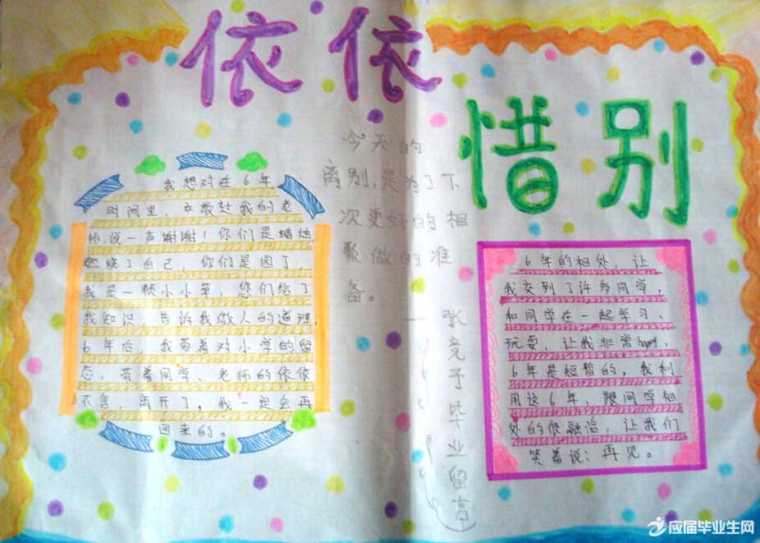 依依
惜别
今天的
离别,是为了下
次更好的相
聚做的准
备。
——张竞予毕业留言
我想对在6年
时间里,在教过我的老
师说一声谢谢!你们是蜡烛
燃烧了自己,你们是园丁,
我是一颗小小草,您们给了
我知识,告诉我做人的道理,
6年后,我带着对小学的留
恋,带着同学、老师的依依
不舍,离开了,我一定会再
回来的。
6年的相处,让
我交到了许多同学,
和同学在一起学习、
玩耍,让我非常happy,
6年是短暂的,我利
用这6年,跟同学相
处的很融洽,让我们
笑着说:再见。
应届毕业生网